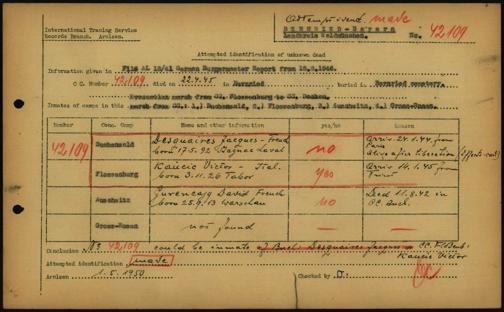 International Tracing Service
Records Branch. Arolsen.
Attempt. ident. made
No. 42,109
Attempted identification of unknown dead
Information given in File AL 12/41 German Burgermaster Report from
CC. Number 42,109 died on 22.4.45 in Bernried buried in Bernried cemetery.
march from CC. Flossenburg to CC. Dachau.
Inmates of camps in this march from CC: 1.) Buchenwald, 2.) Flossenburg, 3.) Auschwitz, 4.) Gross-Rosen.
Number Conc. Camp Name and other information yes/no Reason
42,109
Buchenwald Desquaires Jacques - French born 17.5.92 Laval no Arriv. 24.1.44 from Paris alive after liberation
Flossenburg Kancic Victor - Ital. born 3.11.26 Tabor yes Arriv. 14.1.45 from
Auschwitz David French born 25.9.13 Warschau no Died 11.8.42 in CC. Ausch.
Gross-Rosen not found — —
Conclusion: No 42,109 could be inmate of Buch. Desquaires Jacques CC. Flossenb. Kancic Victor
Attempted identification made
Arolsen 1.5.1950 Checked by